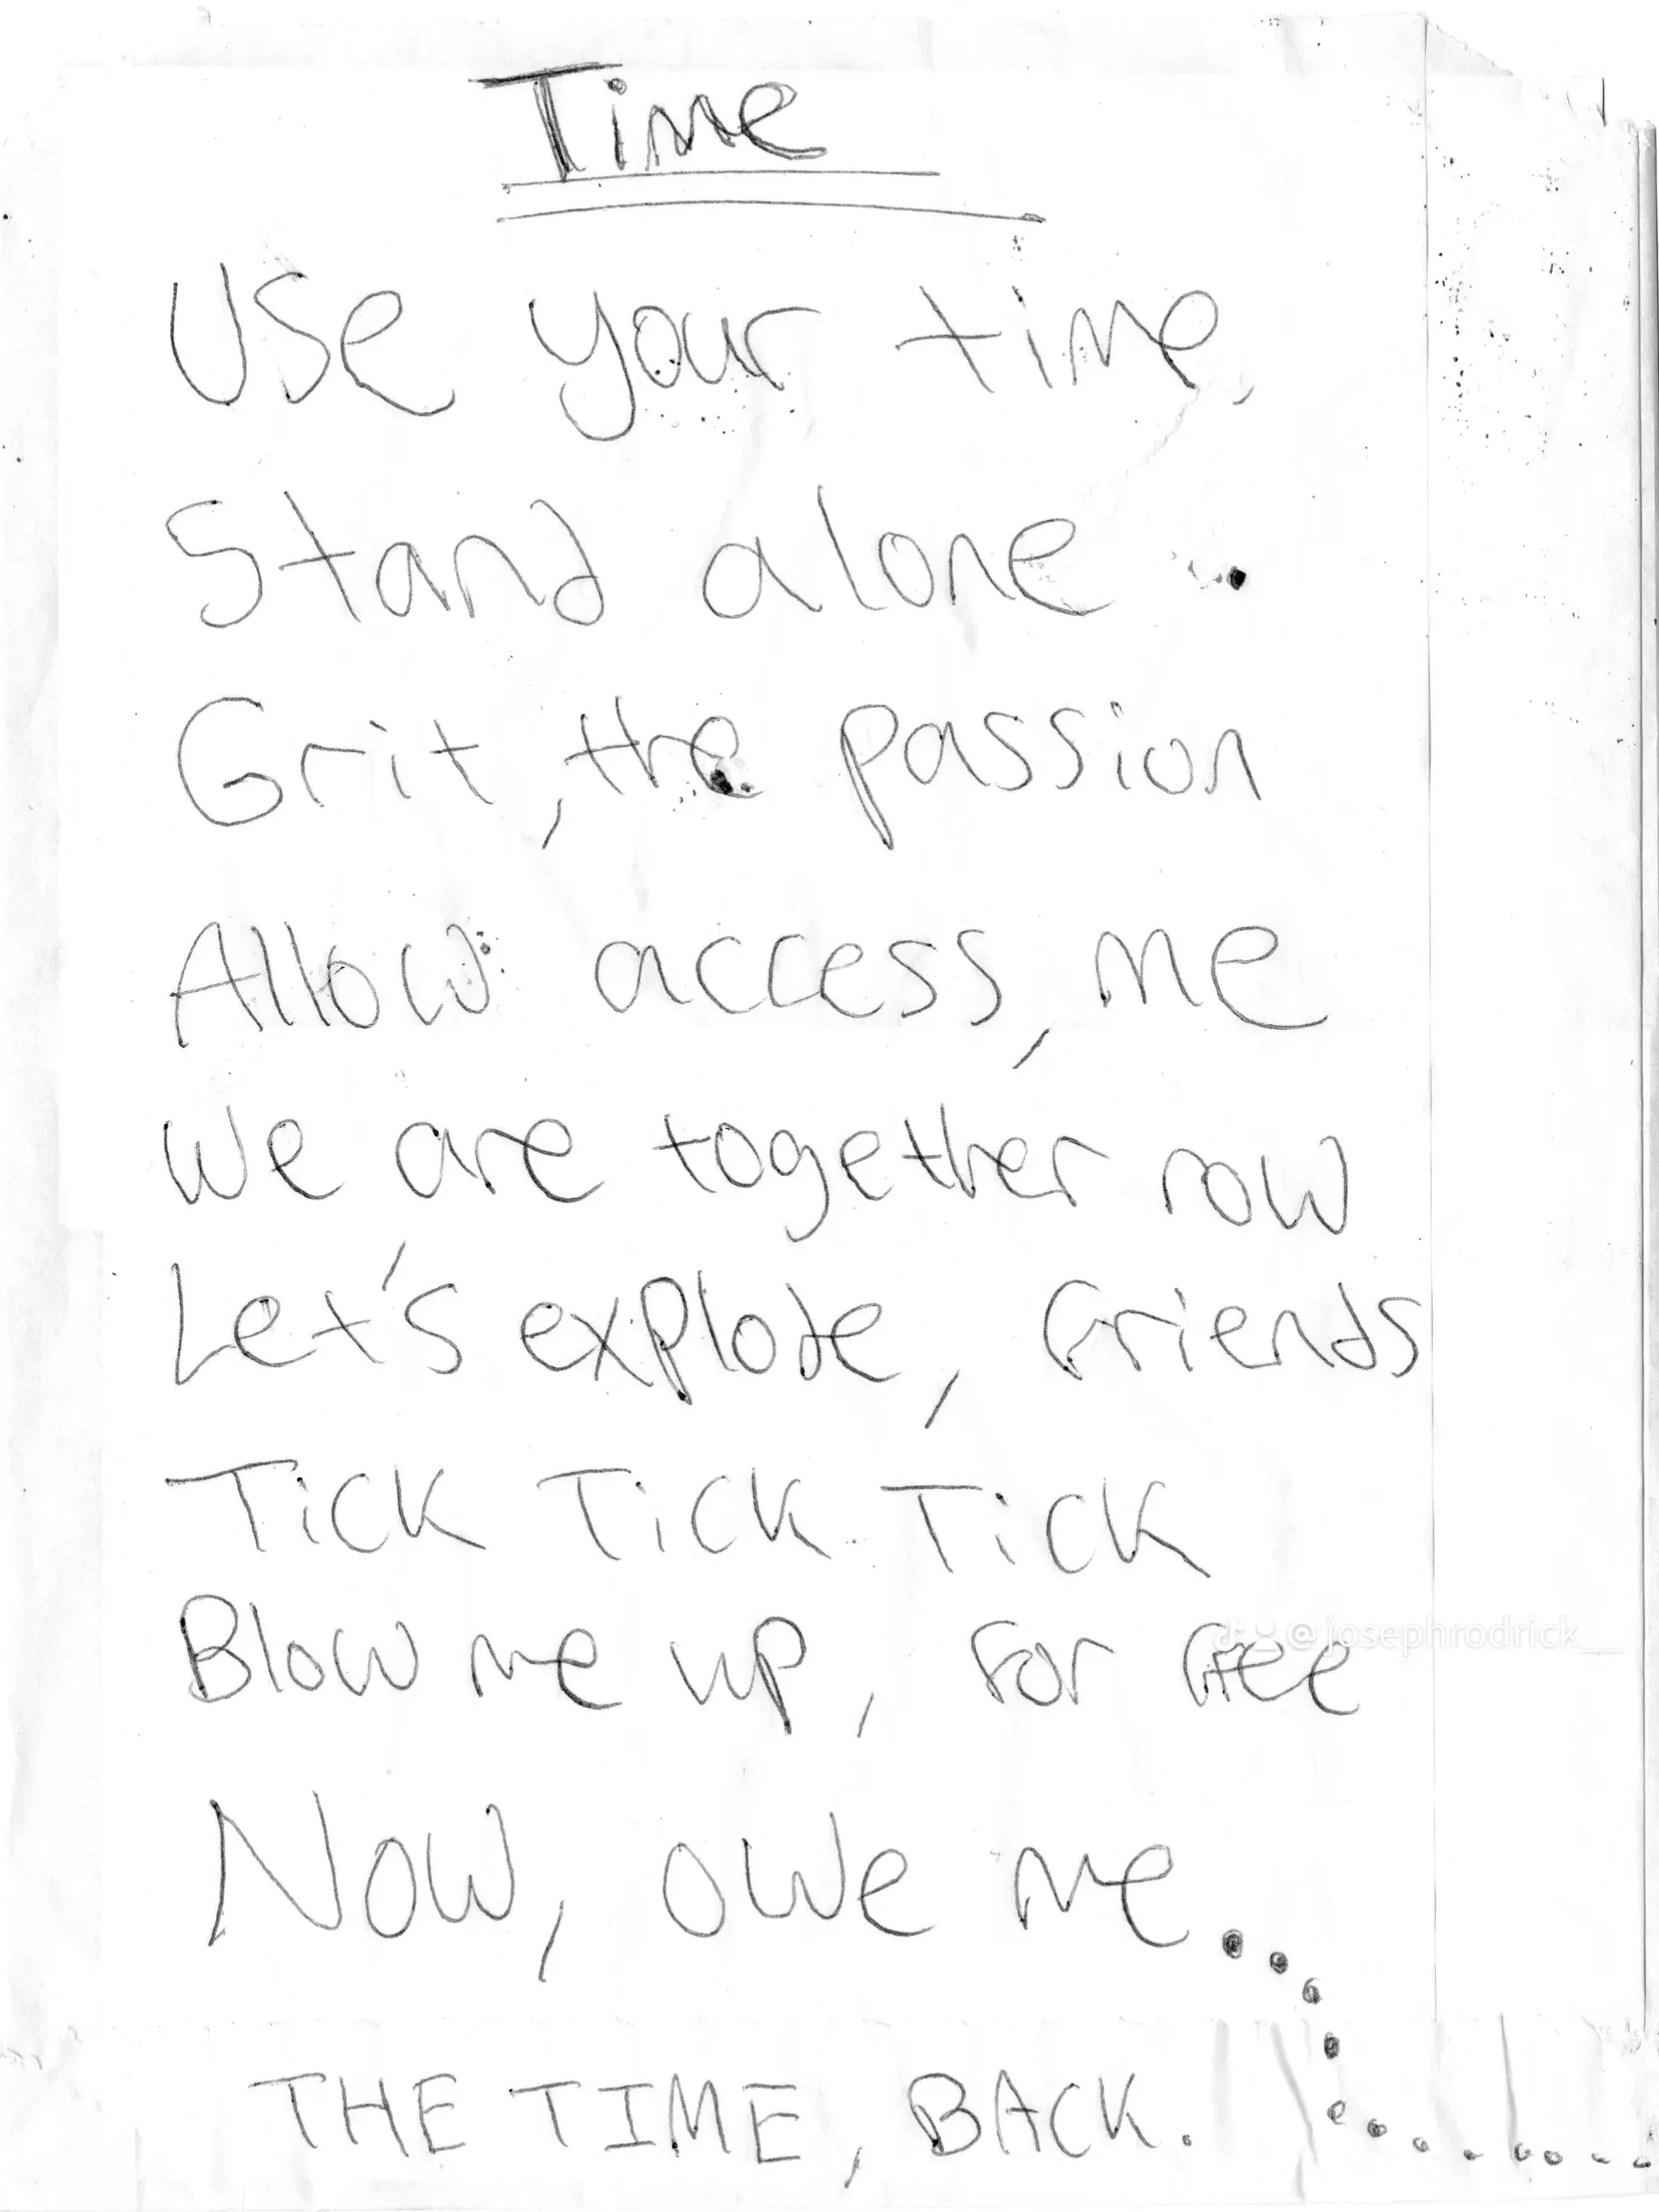 Time
Use your time,
Stand alone..
Grit, the passion
Allow access, me
We are together now
Let's explode, friends
TicK TicK TicK
Blow me up, for free
@josephrodrick__
Now, owe me...
THE TIME, BACK.